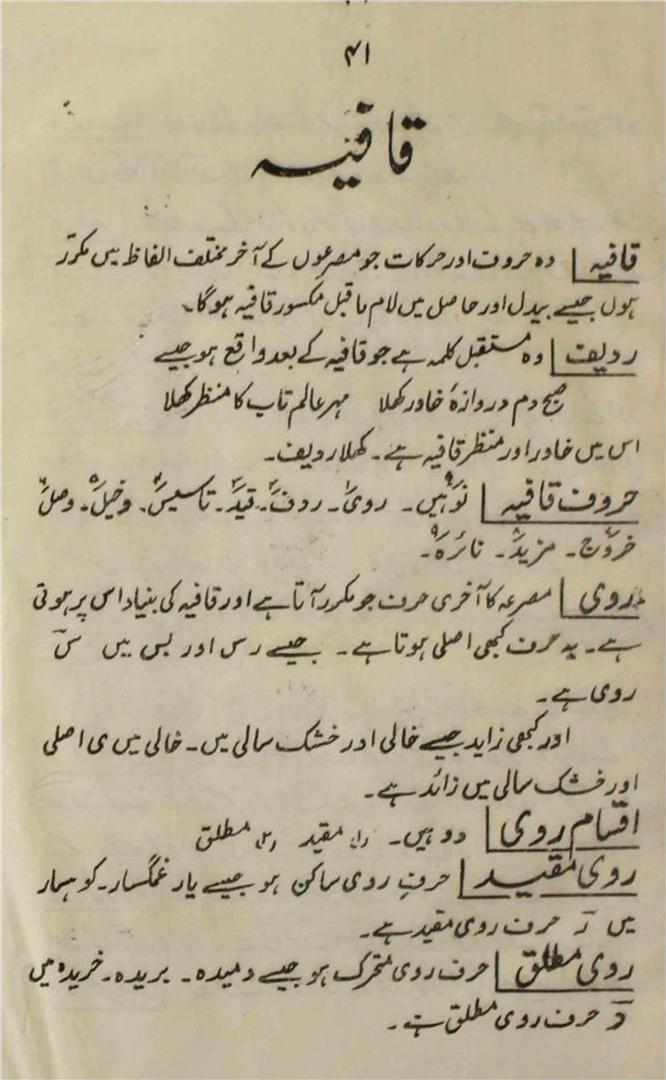 ۴۱
قافیہ
قافیہ | وہ حروف اور حرکات جو مصرعوں کے آخر مختلف الفاظ میں مکرّر
ہوں جیسے بیدل اور حاصل میں لام ماقبل مکسور قافیہ ہوگا۔
ردیف | وہ مستقبل کلمہ ہے جو قافیہ کے بعد واقع ہو جیسے
صبح دم دروازۂ خاور کھلا مہر عالم تاب کا منظر کھلا
اس میں خاور اور منظر قافیہ ہے۔ کھلا ردیف۔
حروف قافیہ | نو ہیں۔ روی۔ ردف۔ قید۔ تاسیس۔ دخیل۔ وصل
خروج۔ مزید۔ نائرہ۔
روی | مصرعہ کا آخری حرف جو مکرر آتا ہے اور قافیہ کی بنیاد اس پر ہوتی
ہے۔ یہ حرف کبھی اصلی ہوتا ہے۔ جیسے رس اور بس میں س
روی ہے۔
اور کبھی زاید جیسے خالی اور خشک سالی میں۔ خالی میں ی اصلی
اور خشک سالی میں زائد ہے۔
اقسام روی | دو ہیں۔ (۱) مقید (۲) مطلق
روی مقید | حرفِ روی ساکن ہو جیسے یار غمگسار۔ کوہسار
میں ر حرف روی مقید ہے۔
روی مطلق | حرف روی متحرک ہو جیسے دمیدہ۔ بریدہ۔ خریدہ میں
د حرف روی مطلق ہے۔